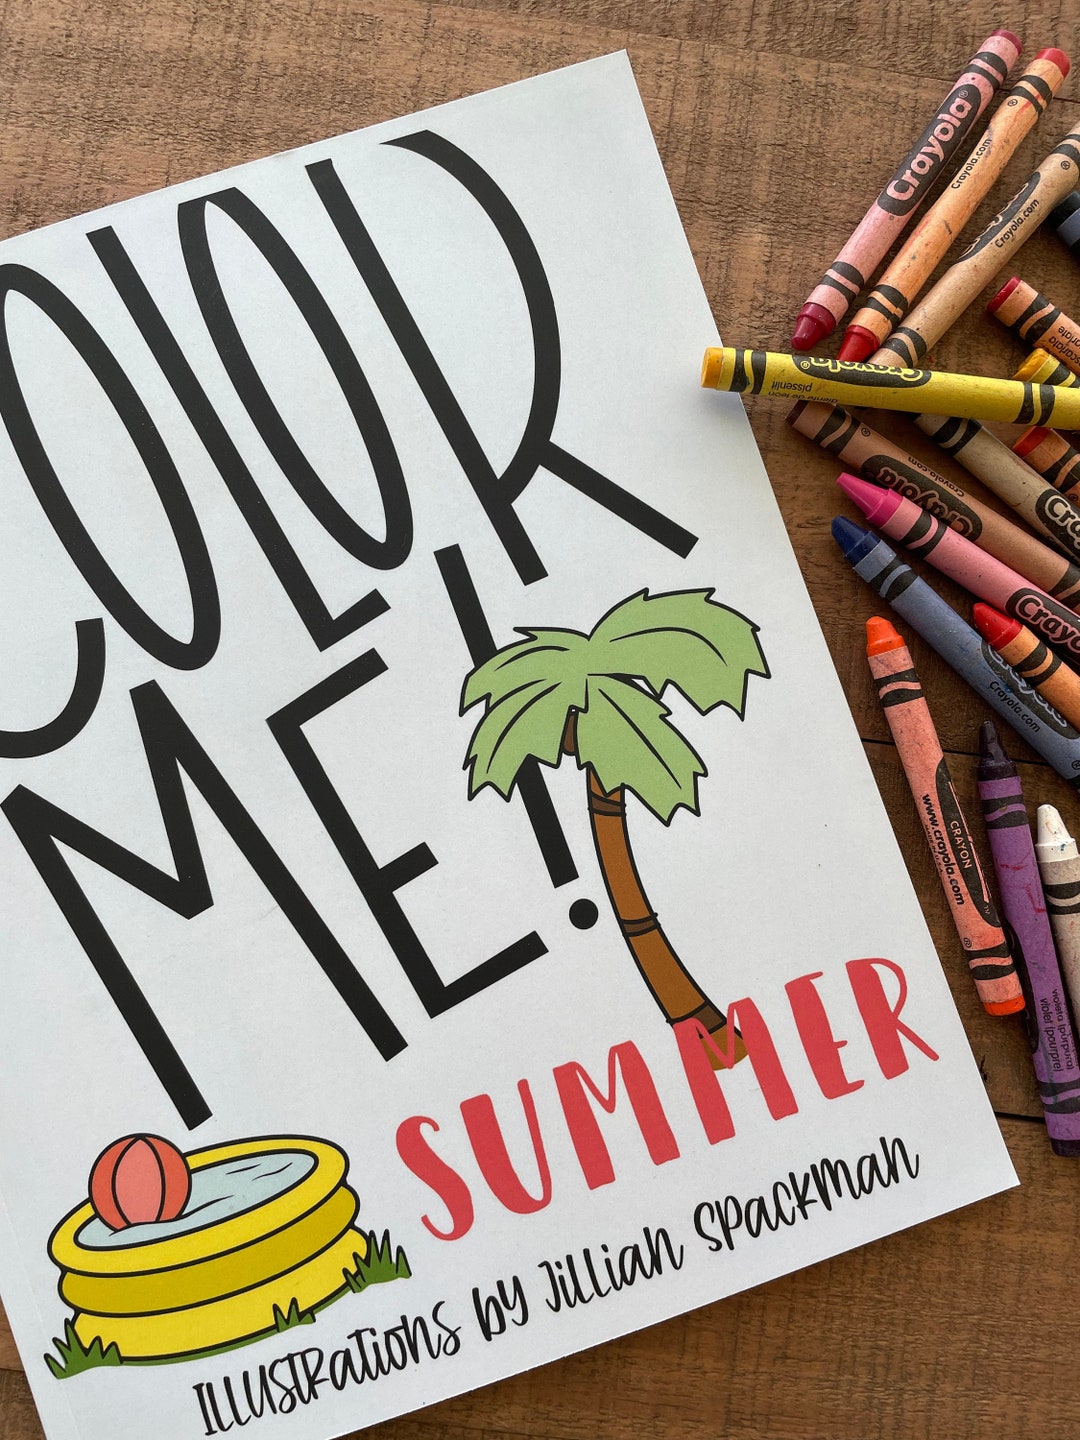 COLOR
ME!
SUMMER
ILLUSTRATIONS BY JILLIAN SPACKMAN
Crayola®
Crayola.com
Crayola.com
escarlata
Crayola®
pissenlit
diente de león
Crayola.com
Crayola
Crayola
Crayola.com
CRAYON
www.crayola.com
violeta (púrpura)
violet (pourpre)